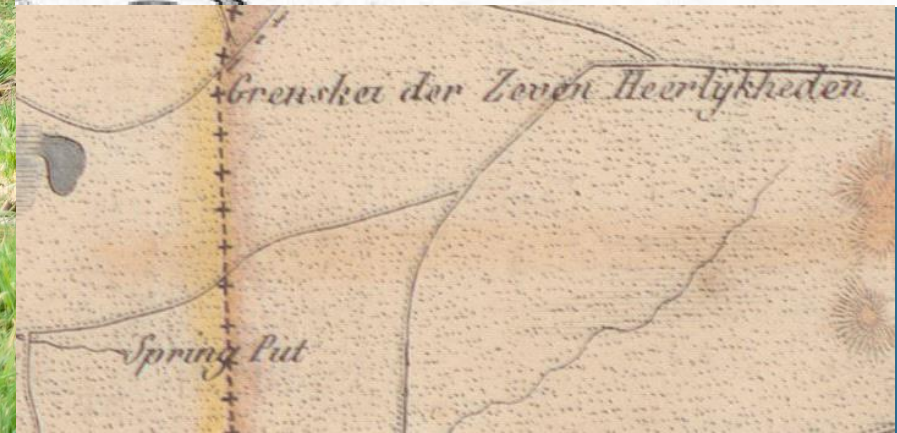 Grenskei der Zeven Heerlykheden
Spring Put